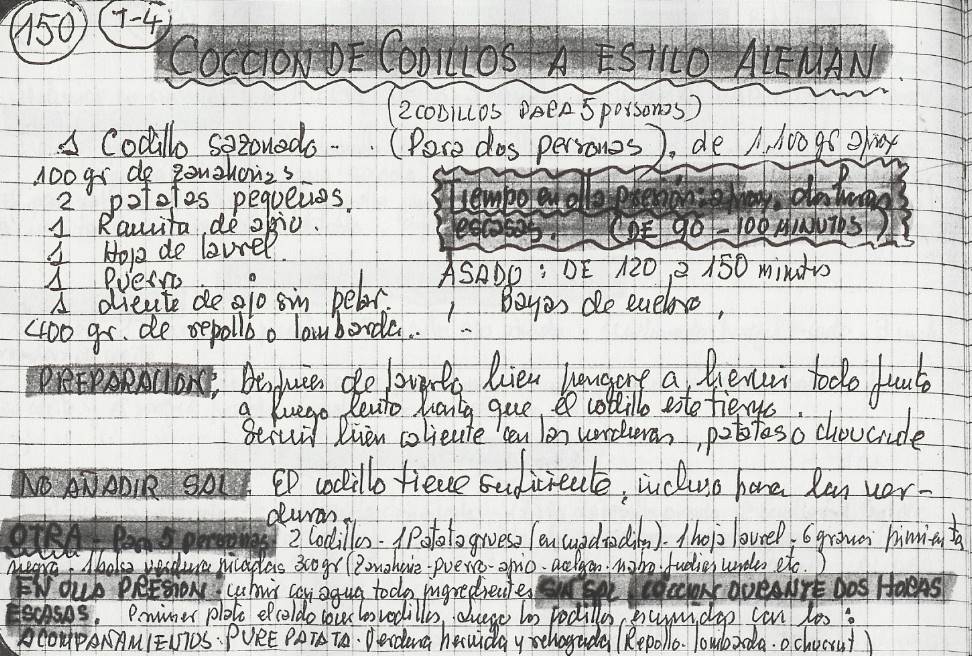 150 T-4
COCCION DE CODILLOS A ESTILO ALEMAN
(2 CODILLOS PARA 5 personas)
1 Codillo sazonado - . (Para dos personas), de 1,100 gr aprox
100 gr de zanahorias
2 patatas pequeñas.
Tiempo en olla presion: aprox. dos horas
1 Ramita de apio.
escasas. (DE 90 - 100 MINUTOS)
1 Hoja de laurel.
1 Puerro.
ASADO: DE 120 a 150 minutos
1 diente de ajo sin pelar. , Bayas de enebro,
400 gr. de repollo o lombarda..
PREPARACION: Después de lavarlo bien pongase a hervir todo junto
a fuego lento hasta que el codillo este tierno.
Servir bien caliente con las verduras, patatas o choucrude
NO AÑADIR SAL. El codillo tiene suficiente, incluso para las ver-
duras.
OTRA - Para 5 personas 2 Codillos - 1 Patata gruesa (en cuadraditos) - 1 hoja laurel - 6 granos pimienta
negra - 1 bolsa verdura picadas 300 gr (Zanahoria - puerro - apio - acelgas - nabo - judias verdes etc.)
EN OLLA PRESION - cubrir con agua todos ingredientes SIN SAL. COCCION DURANTE DOS HORAS
ESCASAS. Primer plato el caldo los codillos, luego los codillos, escurridos con los:
ACOMPAÑAMIENTOS - PURE PATATA - Verdura hervida y rehogada (Repollo - lombarda - o chucrut)